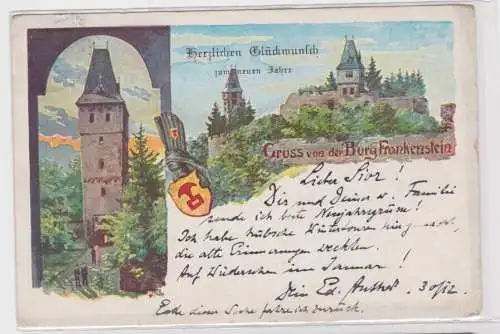 Herzlichen Glückwunsch
zum neuen Jahre
Gruss von der Burg Frankenstein
Lieber
Dir und Deiner w. Familie
sende ich beste Neujahrsgrüsse!
Ich habe hübsche
die alte Erinnerungen wecken.
Auf Wiedersehen im Januar!
Dein Ed. 30/12.
Ende dieser fahre ich zurück.